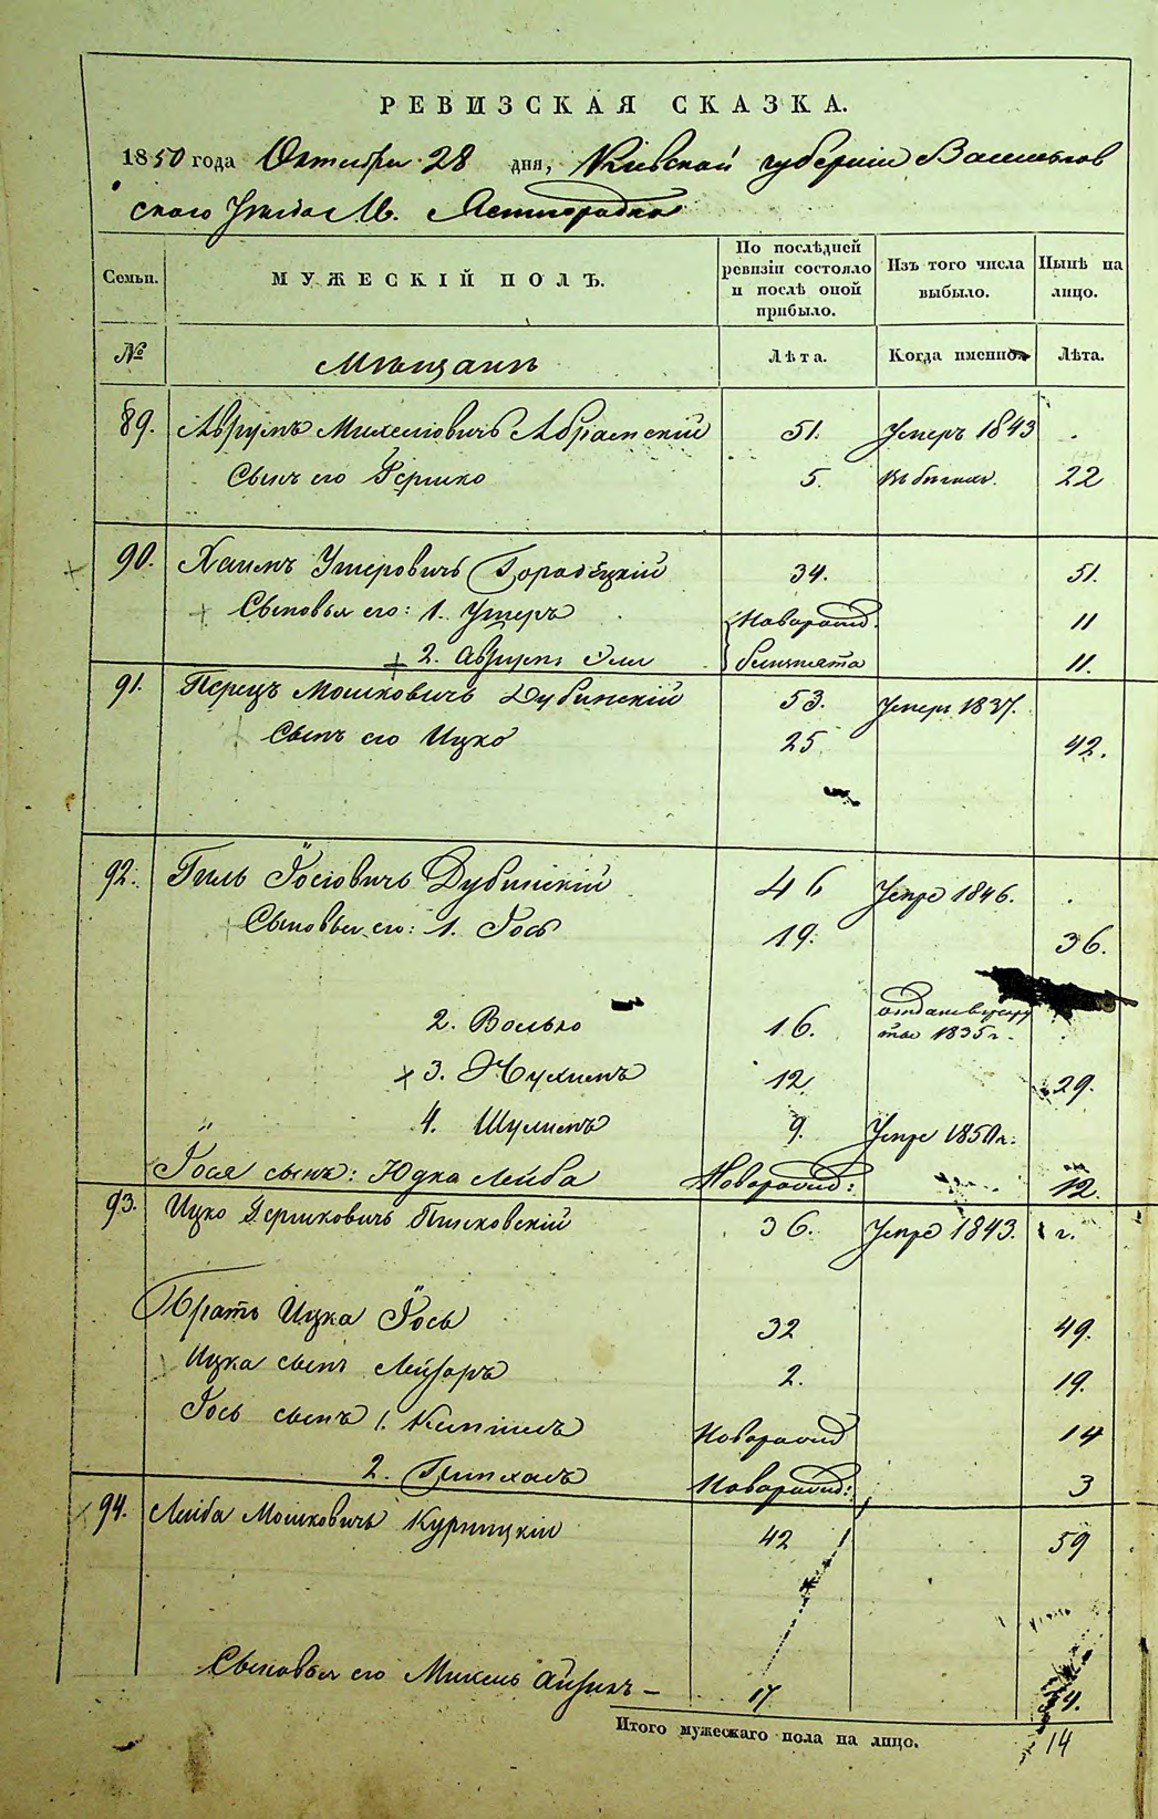 РЕВИЗСКАЯ СКАЗКА.
1850 года Октября 28 дня, Киевской губернии Васильков
скаго Уезда М. Ясногородка
Семьи. МУЖЕСКІЙ ПОЛЪ. По послѣдней ревизіи состояло и послѣ оной прибыло. Изъ того числа выбыло. Нынѣ на лицо.
№ Мѣщане Лѣта. Когда именно. Лѣта.
89. Аврумъ Михелевичъ Абрамскій 51. Умеръ 1843
Сынъ его Гершко 5. въ бѣгахъ. 22
90. Хаимъ Ушеровичъ Городецкій 34. 51.
Сыновья его: 1. Ушеръ Новорожд. 11
2. Аврумъ Эли близнята 11.
91. Перецъ Мошковичъ Дубинскій 53. Умеръ 1837.
Сынъ его Ицко 25 42.
92. Гиль Іосіовичъ Дубинскій 46 Умре 1846.
Сыновья его: 1. Іось 19. 36.
2. Волько 16. отданъ въ рекру
ты 1835 г.
3. Нухимъ 12 29.
4. Шулимъ 9. Умре 1850 г.
Іося сынъ: Юдка Лейба Новорожд: 12.
93. Ицко Гершковичъ 36. Умре 1843. г.
Братъ Ицка Іось 32 49.
Ицка сынъ Лейзоръ 2. 19.
Іось сынъ 1. Новорожд 14
2. Новорожд: 3
94. Лейба Мошковичъ Курницкій 42 59
Сыновья его Михель Айзикъ – 17 34.
Итого мужескаго пола на лицо. 14